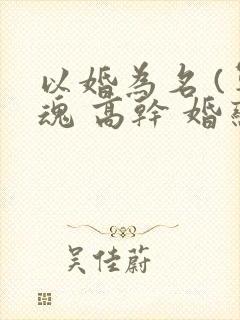 以婚為名(
魂 高幹 婚
吴佳蔚